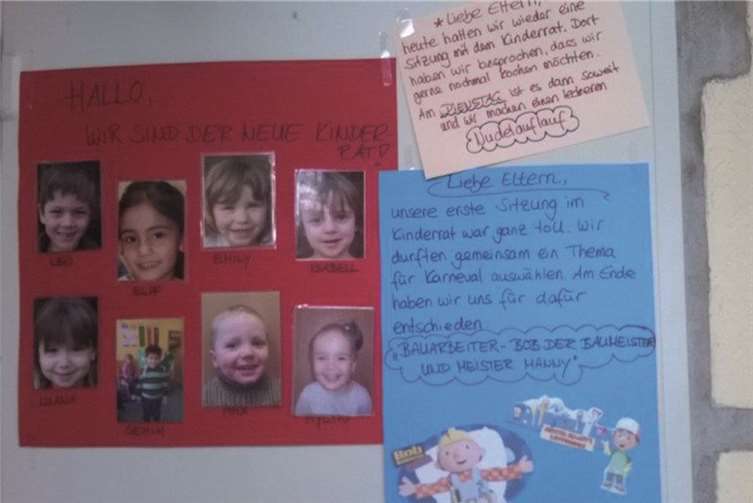 HALLO,
WIR SIND DER NEUE KINDER
RAT!
LEO
ELIF
EMILY
ISABELL
* Liebe Eltern,
heute hatten wir wieder eine
Sitzung mit dem Kinderrat. Dort
haben wir besprochen, dass wir
gerne nochmal kochen möchten.
Am DIENSTAG ist es dann soweit
und wir machen einen leckeren
Nudelauflauf
Liebe Eltern,
unsere erste Sitzung im
Kinderrat war ganz toll. Wir
durften gemeinsam ein Thema
für Karneval auswählen. Am Ende
haben wir uns für dafür
entschieden
"BAUARBEITER- BOB DER BAUMEISTER
UND MEISTER MANNY"
Bob